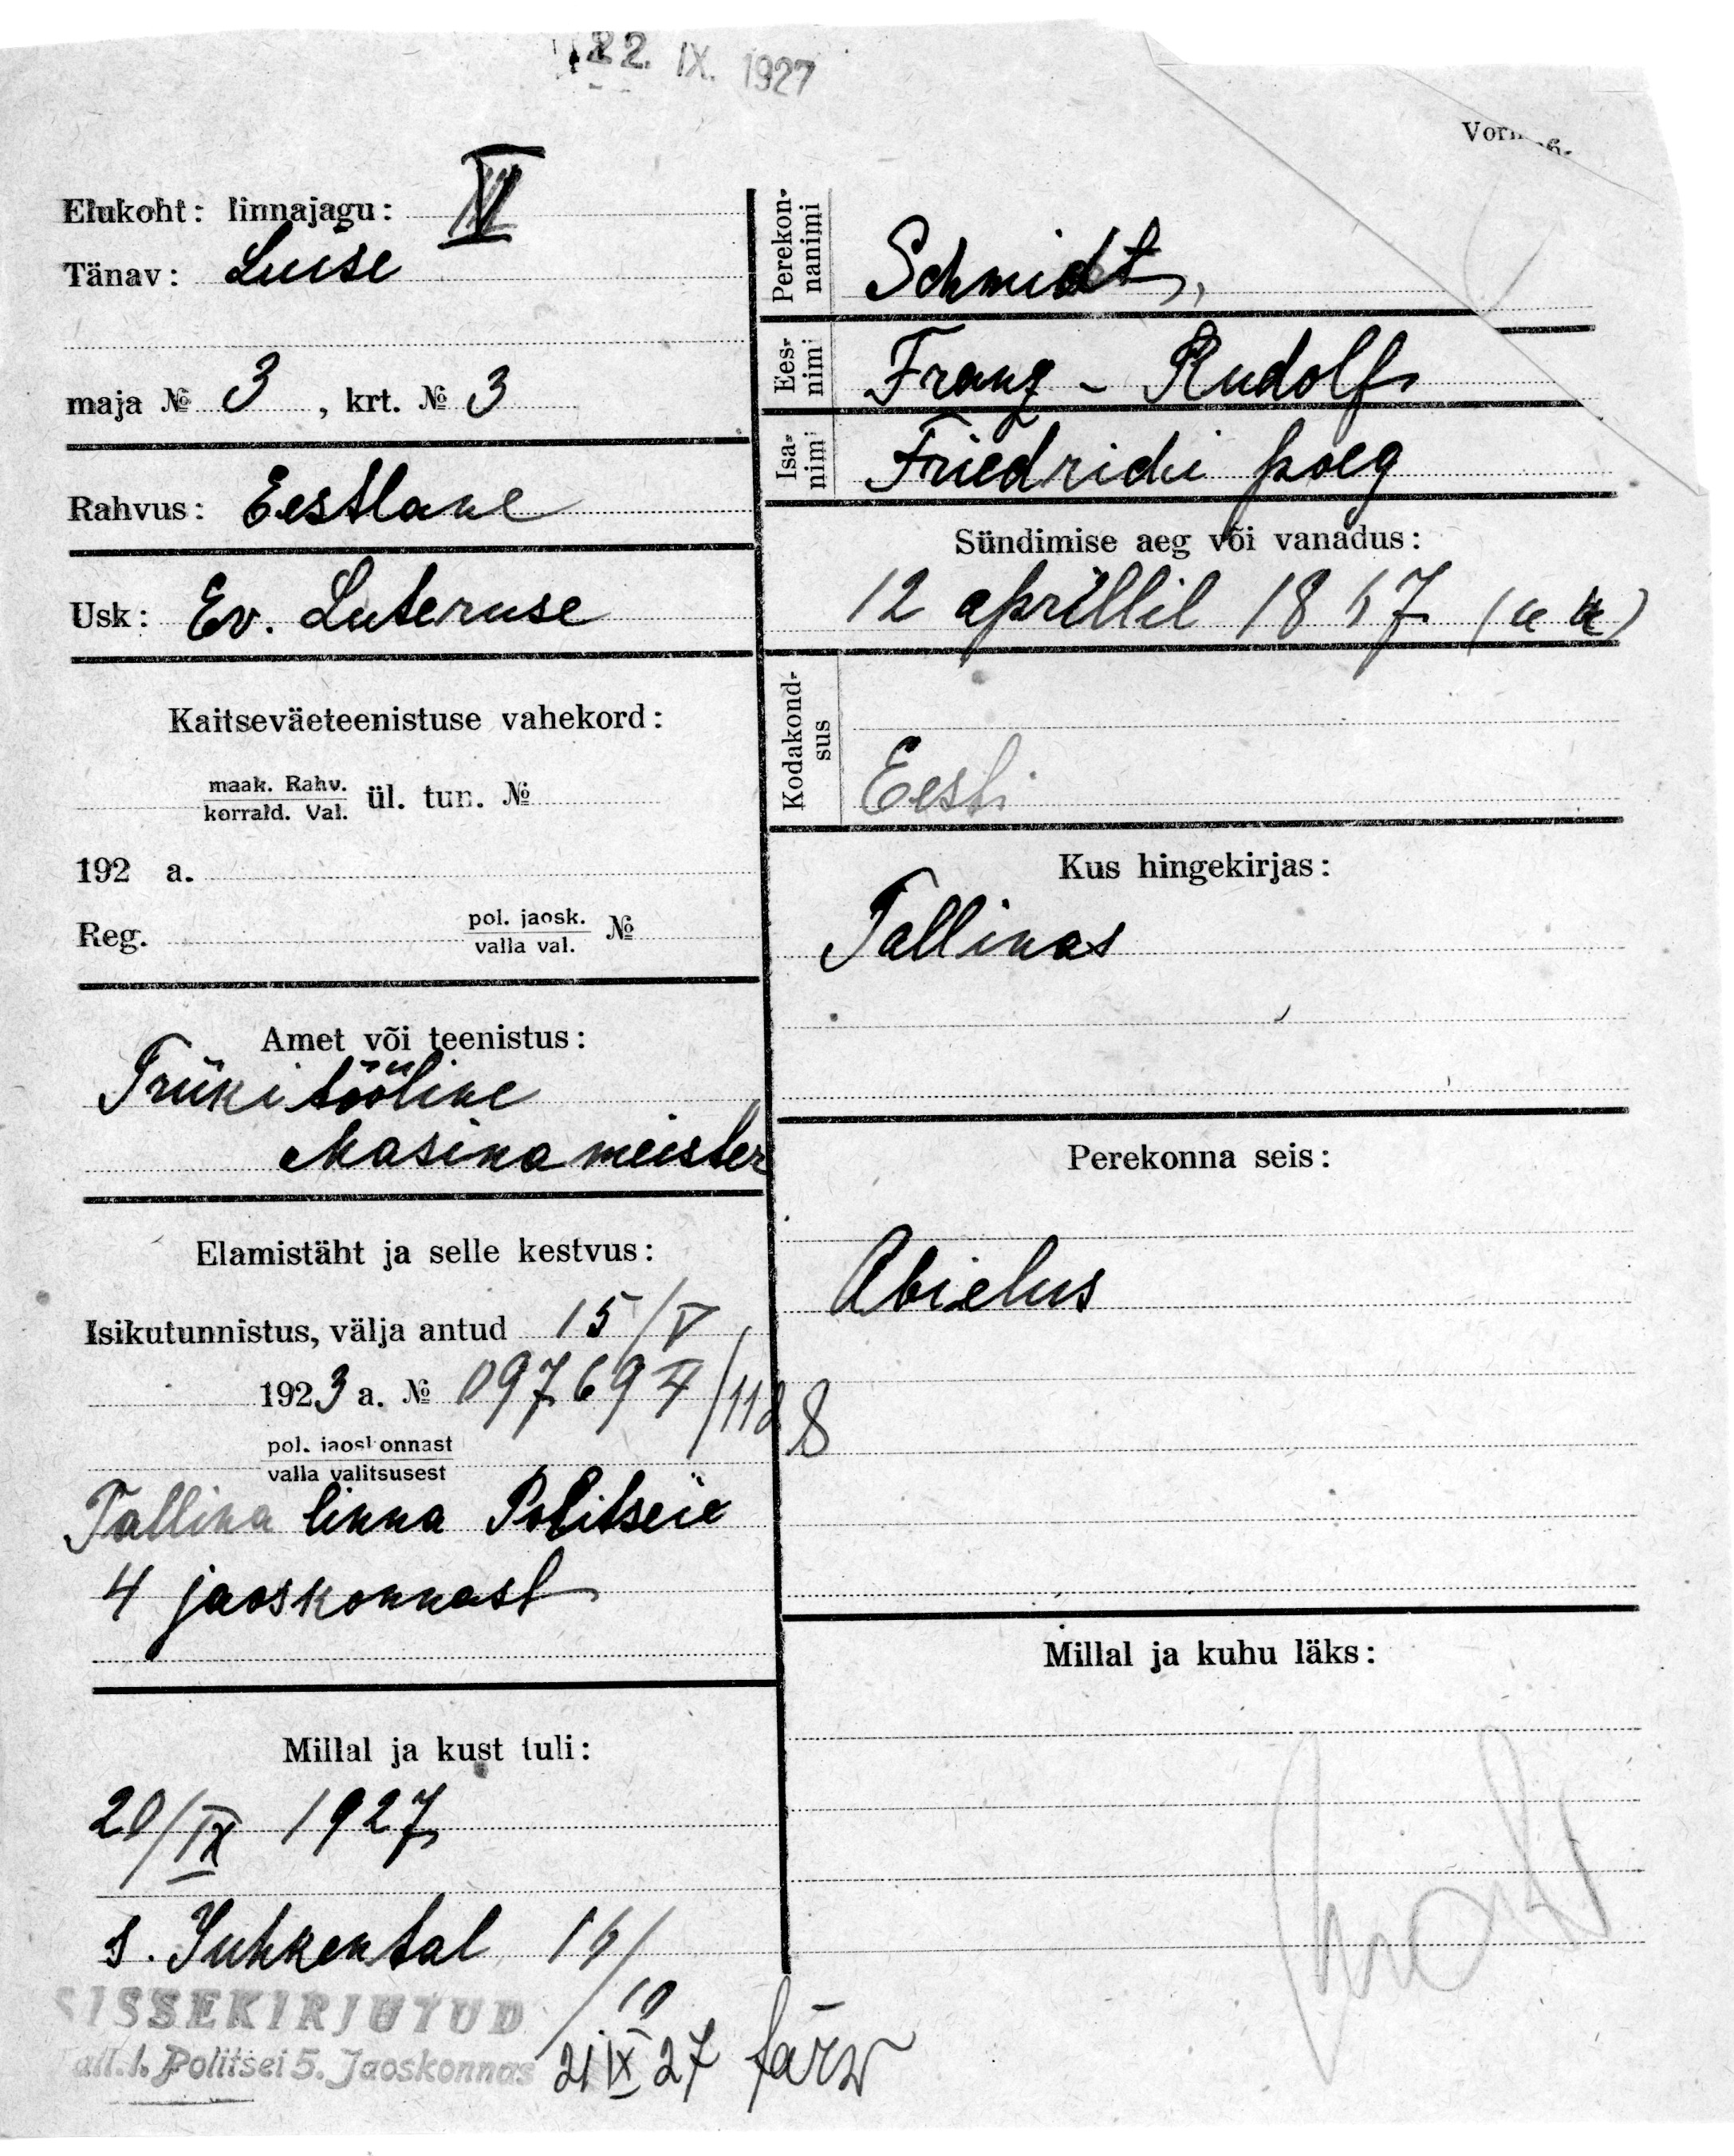 22. IX. 1927
Elukoht: linnajagu:
Tänav: Luise
maja № 3, krt. № 3
Rahvus: Eestlane
Usk: Ev. Luteruse
Kaitseväeteenistuse vahekord:
maak. Rahv.
korrald. Val. ül. tun. №
192 a.
Reg. pol. jaosk. №
valla val.
Amet või teenistus:
Trükitööline
Masina meister
Elamistäht ja selle kestvus:
Isikutunnistus, välja antud 15/V
1923 a. № 097694/1128
pol. jaoskonnast
valla valitsusest
Tallina linna Politseie
4 jaoskonnast
Millal ja kust tuli:
20/IX 1927
s. Juhkental 16/10
SISSEKIRJUTUD
Tall. l. Politsei 5. Jaoskonnas
21 IX 27
Perekon-
nanimi
Schmidt,
Ees-
nimi
Franz - Rudolf
Isa-
nimi
Friedrichi poeg
Sündimise aeg või vanadus:
12 aprillil 1867
Kodakond-
sus
Eesti
Kus hingekirjas:
Tallinas
Perekonna seis:
Abielus
Millal ja kuhu läks: